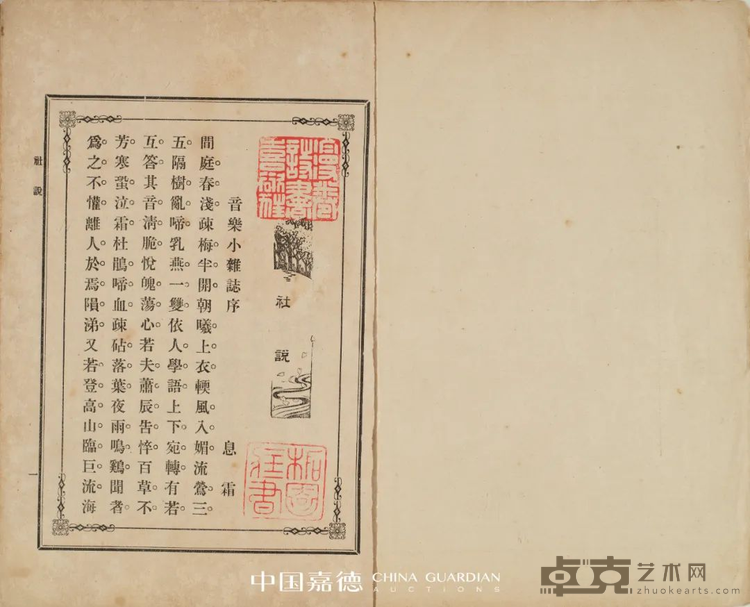 社說
音樂小雜誌序
息霜
間庭春淺疎梅半開朝曦上衣輭風入媚流鶯三
五隔樹亂啼乳燕一雙依人學語上下宛轉有若
互答其音清脆悅魄蕩心若夫蕭辰告悴百草不
芳寒蛩泣霜杜鵑啼血疎砧落葉夜雨鳴鷄聞者
爲之不懽離人於焉隕涕又若登高山臨巨流海
社說
一
中国嘉德 CHINA GUARDIAN
AUCTIONS
卓克艺术网
zhuokearts.com